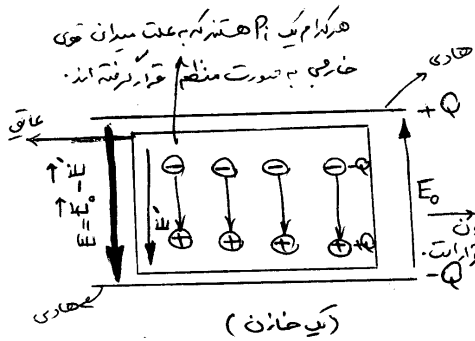 هرکدام یک Pi هستند که به علت میدان قوی
خارجی به صورت منظم قرار گرفته اند.
هادی
عایق
+Q
- - - - -Q
E₀
E'
E=E₀-E'
+ + + + +Q
-Q
هادی
(یک خازن)